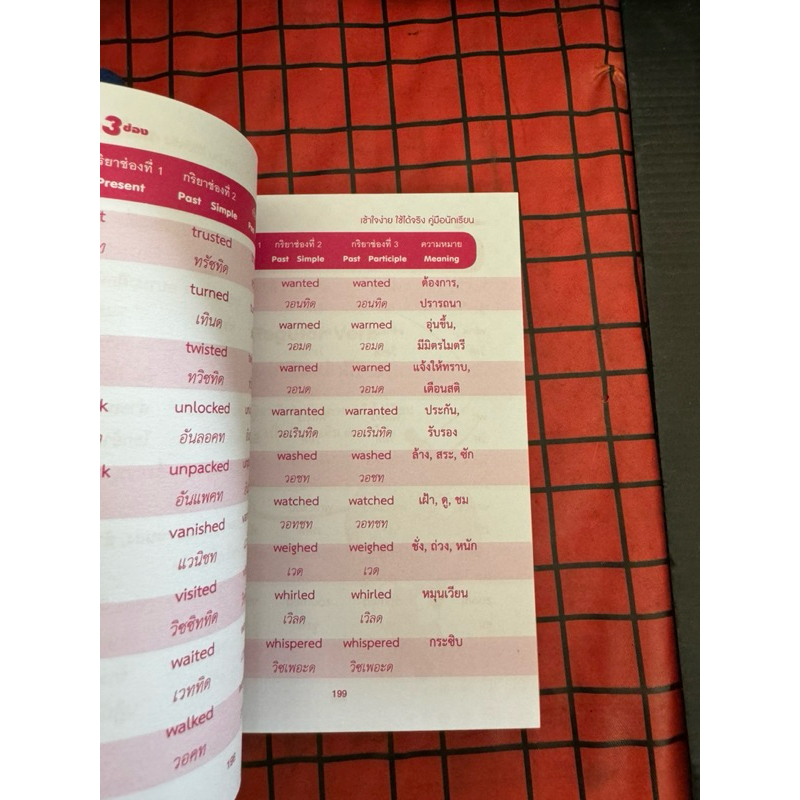 3 ช่อง
กริยาช่องที่ 1 กริยาช่องที่ 2
Present Past Simple
trusted
ทรัซทิด
turned
เทินด
twisted
ทวิซทิด
unlocked
อันลอคท
unpacked
อันแพคท
vanished
แวนิชท
visited
วิซซิททิด
waited
เวททิด
walked
วอคท
เข้าใจง่าย ใช้ได้จริง คู่มือนักเรียน
1 กริยาช่องที่ 2 กริยาช่องที่ 3 ความหมาย
Past Simple Past Participle Meaning
wanted wanted ต้องการ,
วอนทิด วอนทิด ปรารถนา
warmed warmed อุ่นขึ้น,
วอมด วอมด มีมิตรไมตรี
warned warned แจ้งให้ทราบ,
วอนด วอนด เตือนสติ
warranted warranted ประกัน,
วอเรินทิด วอเรินทิด รับรอง
washed washed ล้าง, สระ, ซัก
วอชท วอชท
watched watched เฝ้า, ดู, ชม
วอทชท วอทชท
weighed weighed ชั่ง, ถ่วง, หนัก
เวด เวด
whirled whirled หมุนเวียน
เวิลด เวิลด
whispered whispered กระซิบ
วิซเพอะด วิซเพอะด
199